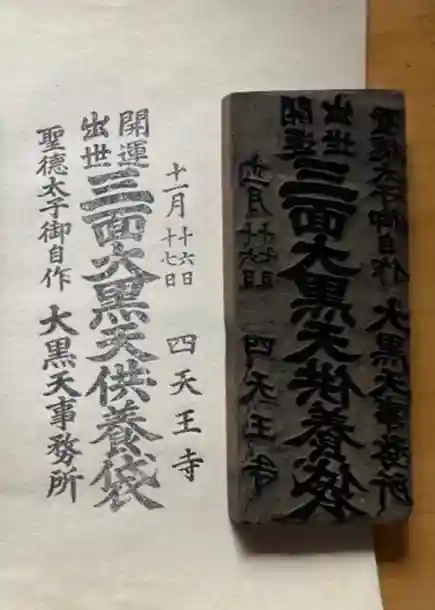 十一月 十六日 十七日 四天王寺
開運 出世 三面大黒天供養袋
聖德太子御自作 大黒天事務所
十一月 十六日 十七日 四天王寺
開運 出世 三面大黒天供養袋
聖德太子御自作 大黒天事務所